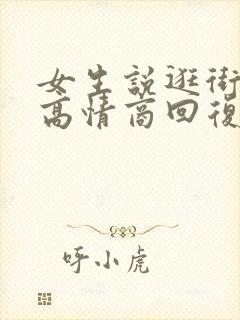 女生說逛街
高情商回復
呼小虎